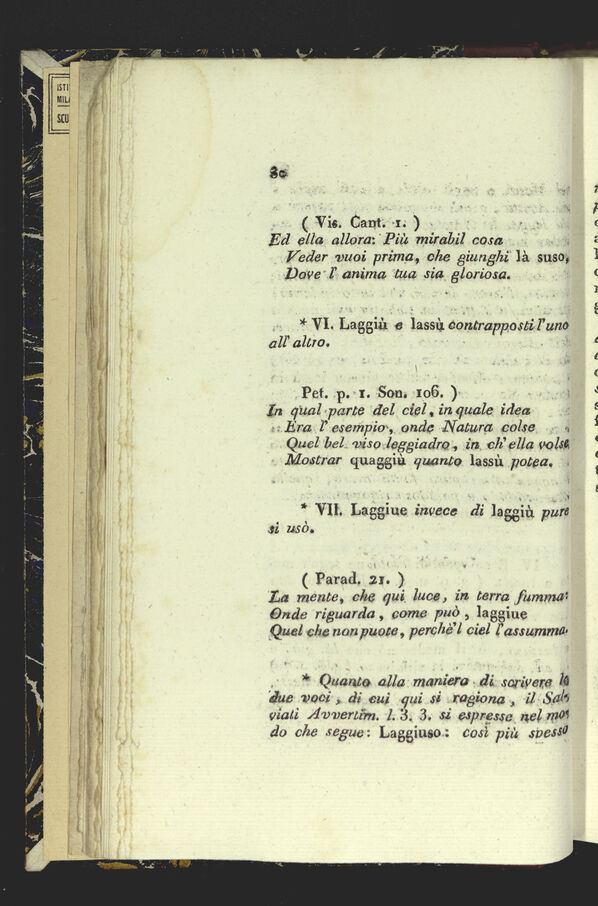 ISTI
MILA
SCU
80
( Vis. Cant. 1. )
Ed ella allora: Più mirabil cosa
Veder vuoi prima, che giunghi là suso,
Dove l' anima tua sia gloriosa.
* VI. Laggiù e lassù contrapposti l'uno
all' altro.
Pet. p. 1. Son. 106. )
In qual parte del ciel, in quale idea
Era l' esempio, onde Natura colse
Quel bel viso leggiadro, in ch' ella volse
Mostrar quaggiù quanto lassù potea.
* VII. Laggiue invece di laggiù pure
si usò.
( Parad. 21. )
La mente, che qui luce, in terra fumma:
Onde riguarda, come può, laggiue
Quel che non puote, perchè'l ciel l'assumma.
* Quanto alla maniera di scrivere le
due voci, di cui qui si ragiona, il Sal-
viati Avvertim. l. 3. 3. si espresse nel mo-
do che segue: Laggiuso: così più spesso